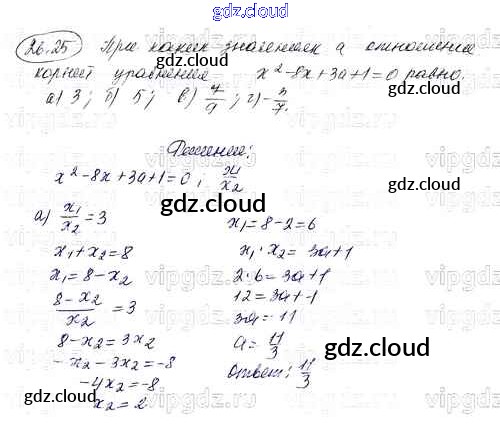 gdz.cloud
26.25 При каких значениях a отношение
корней уравнения x²-8x+3a+1=0 равно:
а) 3; б) 5; в) 7/9; г) -3/7.
gdz.cloud
Решение:
x²-8x+3a+1=0; x1/x2
а) x1/x2=3
x1+x2=8
x1=8-x2
8-x2/x2=3
8-x2=3x2
-x2-3x2=-8
-4x2=-8
x2=2
x1=8-2=6
x1·x2=3a+1
2·6=3a+1
12=3a+1
3a=11
a=11/3
Ответ: 11/3
gdz.cloud
gdz.cloud
gdz.cloud
gdz.cloud